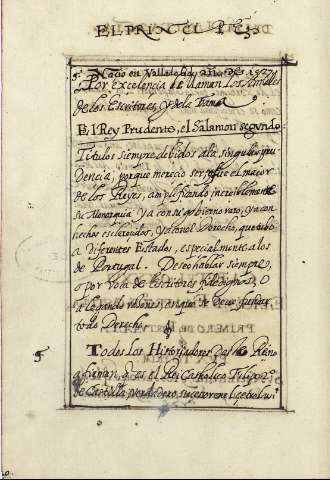 EL PRINCI
Nacio en Valladolid, año de 1527
Por Excelencia le llaman los Annales
de los Escritores, y de la Fama
El Rey Prudente, el Salamon segundo
Titulos siempre debidos a la singular pru
dencia, porque merecio ser el maior
de los Reyes, amplificando increiblemente
su Monarquia ya con su gobierno raro, ya con
hechos esclarecidos, ya con el Derecho, que tubo
a Diferentes Estados, especialmente a los
de Portugal. Deseo hablar siempre,
o por Voca de Escritores fidedignos, O
alegando raçones, en que se Deue
todo Derecho
5 Todos los Historiadores Reino
afirman, q es el Rei Catholico Filippo
de Castilla verdadero, sucesor